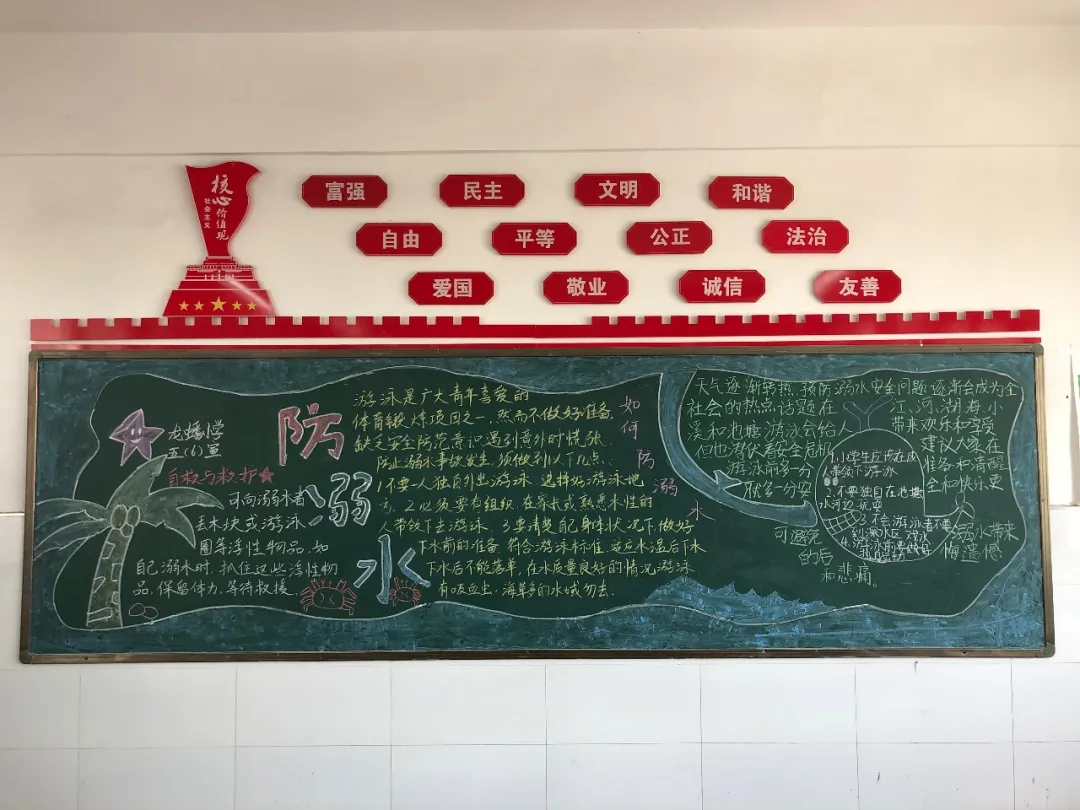 核心价值观
社会主义
富强
民主
文明
和谐
自由
平等
公正
法治
爱国
敬业
诚信
友善
龙蟠小学
五(6)宣
自救与救护
可向溺水者
丢木块或游泳
圈等浮性物品.如
自己溺水时.抓住这些浮性物
品.保留体力.等待救援.
防
溺
水
游泳是广大青年喜爱的
体育锻炼项目之一.然而不做好准备.
缺乏安全防范意识遇到意外时慌张.
防止溺水事故发生.须做到以下几点.
1不要一人独自外出游泳.选择好游泳地
方.2必须要有组织.在家长或熟悉水性的
人带领下去游泳.3要清楚自己身体状况下做好
下水前的准备.符合游泳标准.适应水温后下水
下水后不能落单.在水质量良好的情况游泳
有吸血虫.海草多的水域勿去.
如何防溺水
天气逐渐转热.预防溺水安全问题逐渐会成为全
社会的热点话题在江.河.湖.海.小
溪和池塘游泳会给人带来欢乐和享受
但也潜伏着安全危机建议大家在
游泳前多一分准备和清醒
就多一分安全和快乐更
可避免溺水带来
的后悔遗憾
和悲痛.
1.小学生应该在成
人带领下游泳
2.不要独自在池塘
水河边玩耍
3.不会游泳者不要
到深水区